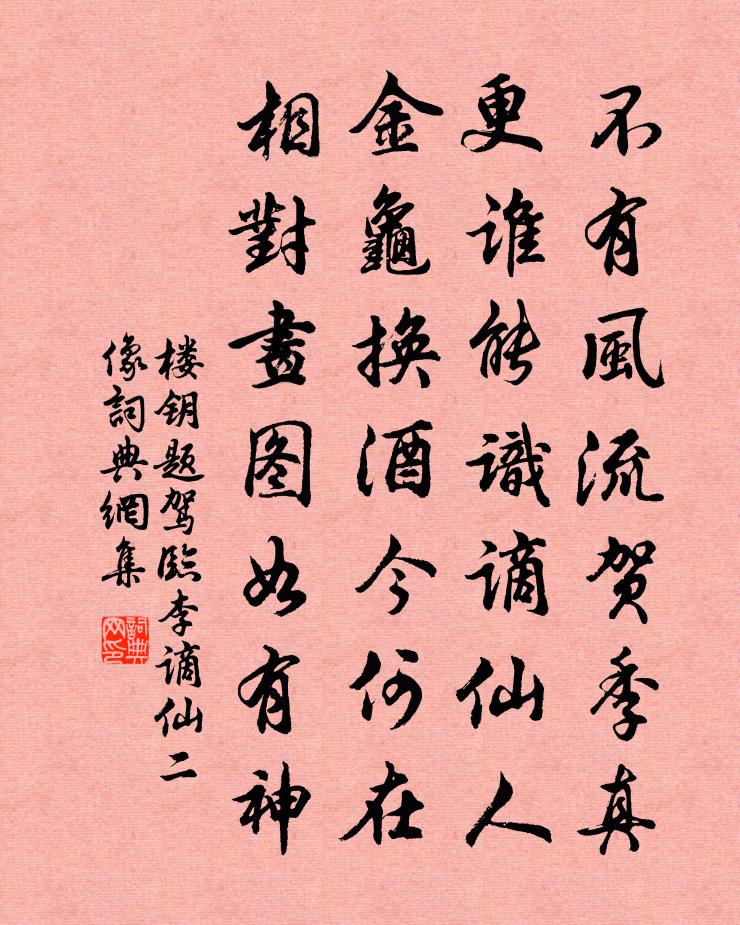 不有風流贺季真
更谁能識謫仙人
金龜换酒今何在
相對畫图如有神
楼钥题驾临李谪仙二
像詞典網集
詞典
网印